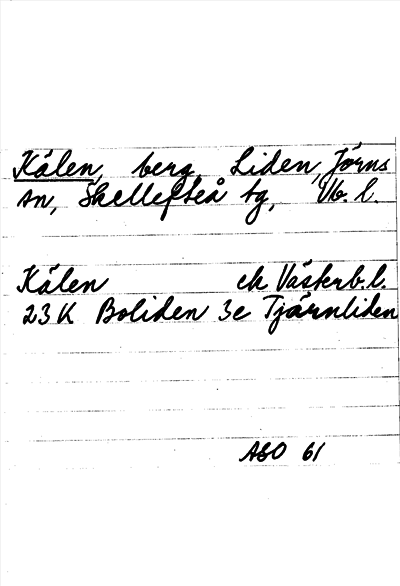 Kålen, berg, Liden, Jörns
sn, Skellefteå tg, Vb. l.
Kålen ek Västerb. l.
23K Boliden 3e Tjärnliden
ASO 61